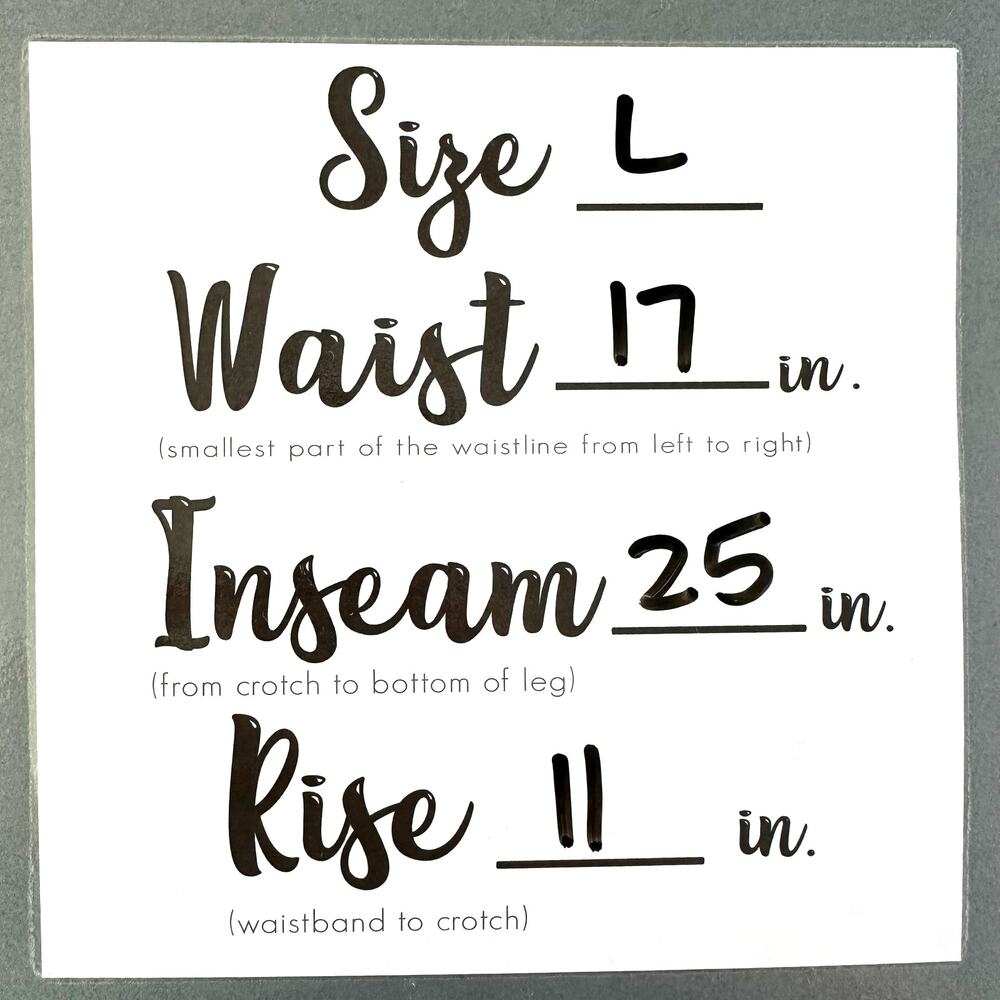 Size L
Waist 17 in.
(smallest part of the waistline from left to right)
Inseam 25 in.
(from crotch to bottom of leg)
Rise 11 in.
(waistband to crotch)